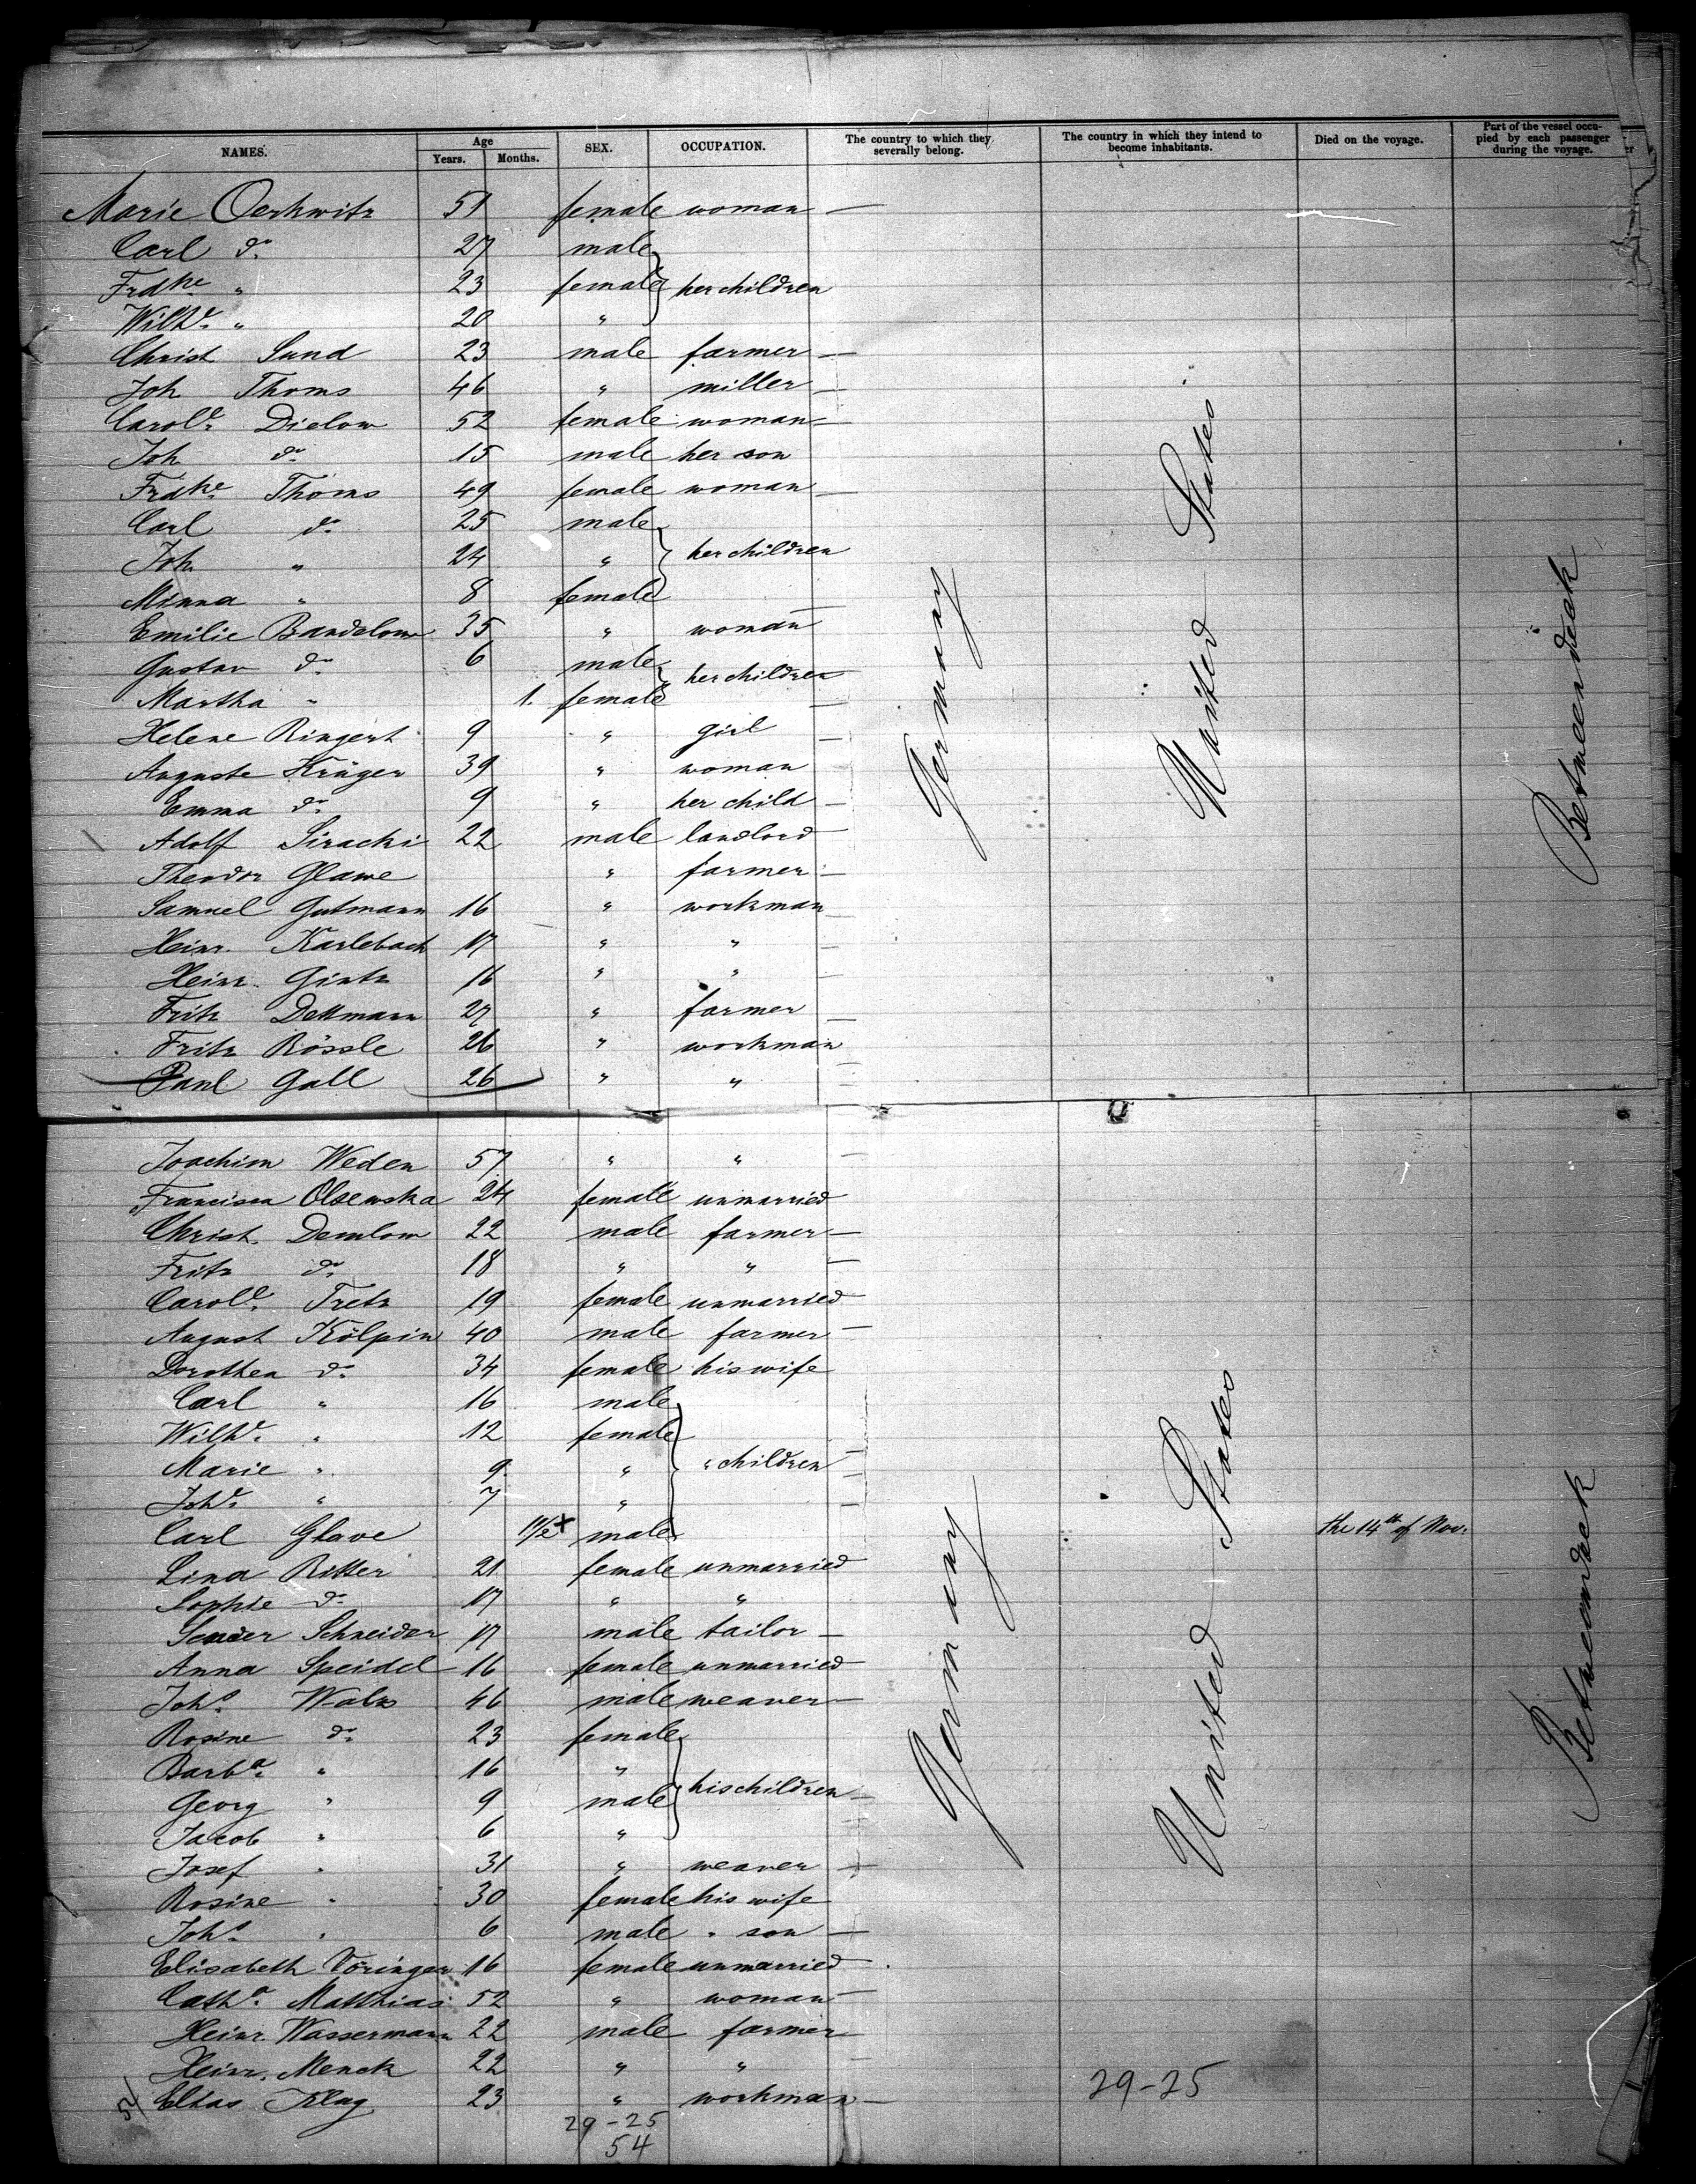 NAMES. Age Years. Months. SEX. OCCUPATION. The country to which they severally belong. The country in which they intend to become inhabitants. Died on the voyage. Part of the vessel occupied by each passenger during the voyage.
Marie Oerkwitz 51 female woman —
Carl do. 27 male
Frdke " 23 female her children
Wilhe. " 20 "
Christ Sund 23 male farmer —
Joh Thoms 46 " miller —
Carole. Dielow 52 female woman —
Joh do. 15 male her son
Frdke Thoms 49 female woman —
Carl do. 25 male
Joh " 24 " her children
Minna " 8 female
Emilie Bandelow 35 " woman —
Gustav do. 6 male her children
Martha " 1. female —
Helene Ringert 9 " girl —
Auguste Krüger 39 " woman —
Emma do. 9 " her child —
Adolf Siracki 22 male landlord —
Theodor Glawe " farmer —
Samuel Gutmann 16 " workman —
Heinr. Karlebach 17 " " —
Heinr. Gintz 16 " " —
Fritz Dettmann 27 " farmer —
Fritz Rössle 26 " workman
Paul Gall 26 " " —
Germany
United States
Betweendeck
Joachim Weden 57 " " —
Francisca Olsewska 24 female unmarried
Christ. Demlow 22 male farmer —
Fritz do. 18 " " —
Carole. Tretz 19 female unmarried
August Kölpin 40 male farmer —
Dorothea do. 34 female his wife
Carl " 16 male
Wilhe. " 12 female —
Marie " 9 " " children —
Johe. " 7 " —
Carl Glave 1 1/2 + male the 14th of Nov.
Lina Ritter 21 female unmarried
Sophie do. 17 " "
Schneider 17 male tailor —
Anna Speidel 16 female unmarried
Johs. Walz 46 male weaver —
Rosine do. 23 female
Barba. " 16 "
Georg " 9 male his children —
Jacob " 6 " —
Josef " 31 " weaver —
Rosine " 30 female his wife
Johs. " 6 male " son —
Elisabeth Vöringer 16 female unmarried
Catha. Matthias 52 " woman —
Heinr. Wassermann 22 male farmer
Heinr. Menck 22 " " —
54 Elias Klag 23 " workman —
Germany
United States
Betweendeck
29-25
54
29-25